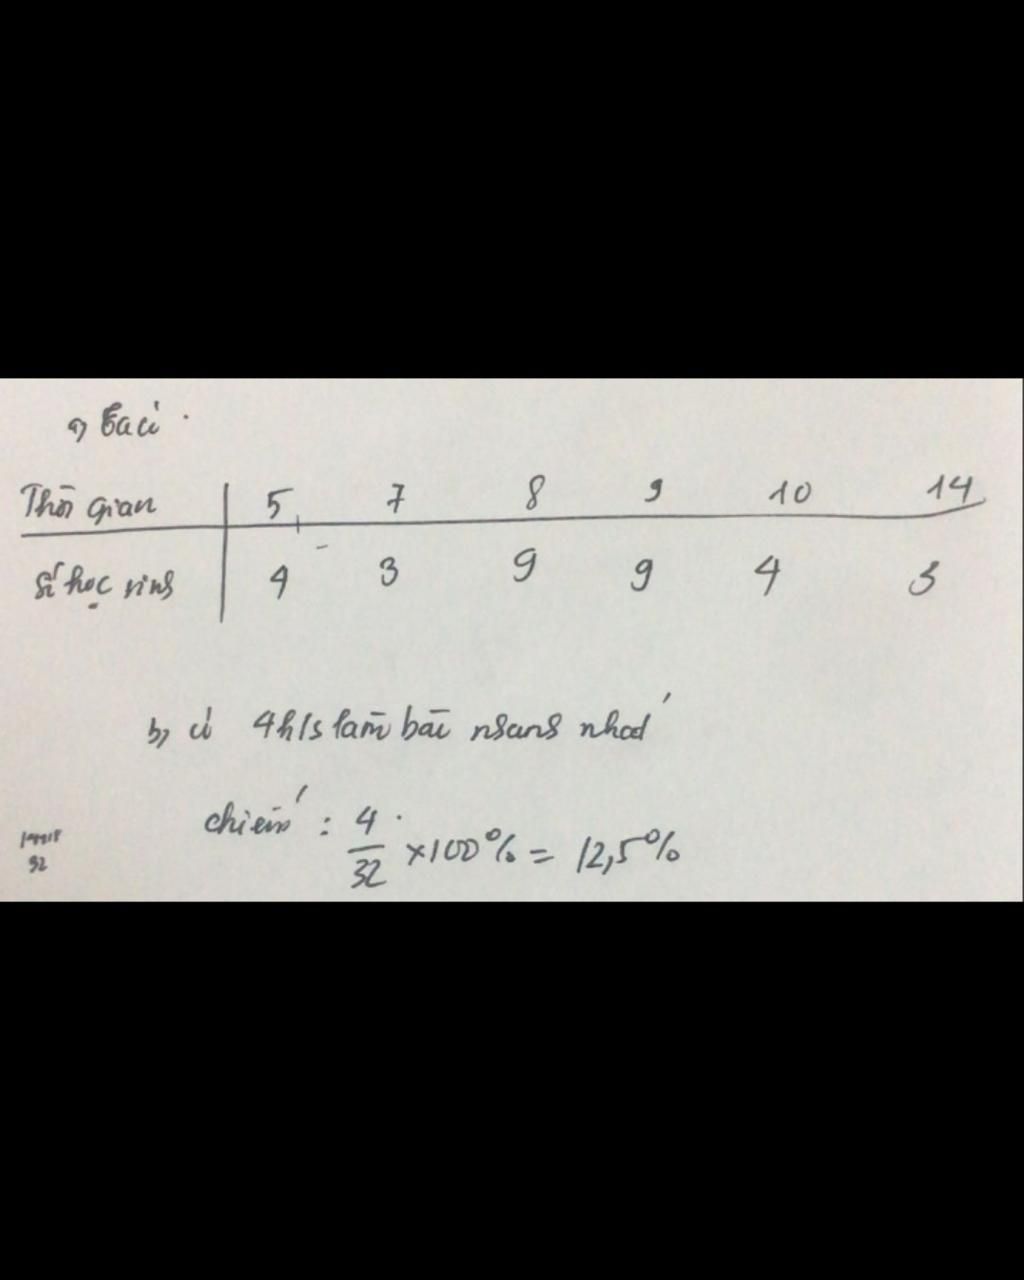 a) Ta có
Thời gian 5 7 8 9 10 14
Số học sinh 4 3 9 9 4 3
b, có 4h/s làm bài nhanh nhất
chiếm : 4/32 ×100% = 12,5%
32